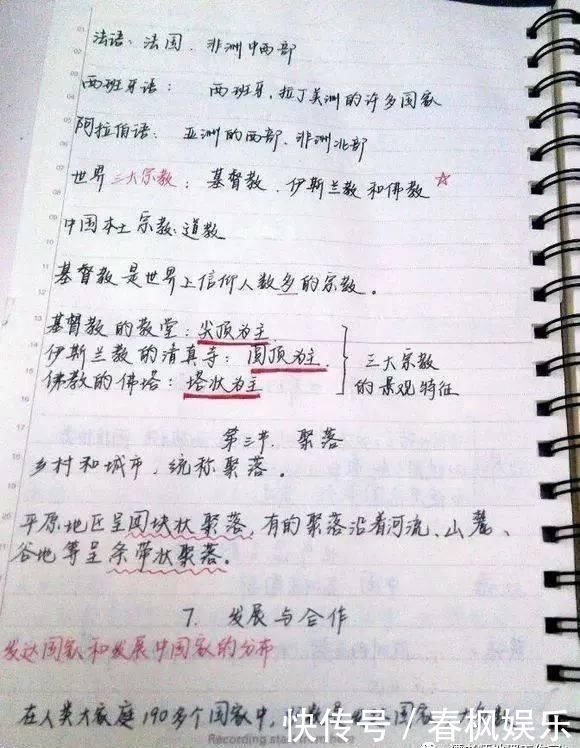 法语：法国、非洲中西部
西班牙语：西班牙，拉丁美洲的许多国家
阿拉伯语：亚洲的西部、非洲北部
世界三大宗教：基督教、伊斯兰教和佛教 ☆
中国本土宗教：道教
基督教是世界上信仰人数多的宗教。
基督教的教堂：尖顶为主
伊斯兰教的清真寺：圆顶为主
佛教的佛塔：塔状为主
三大宗教
的景观特征
第三节 聚落
乡村和城市，统称聚落。
平原地区呈团块状聚落，有的聚落沿着河流、山麓、
谷地等呈条带状聚落。
7. 发展与合作
发达国家和发展中国家的分布
在人类大家庭190多个国家中，
快传号／春枫娱乐
Recording start from here